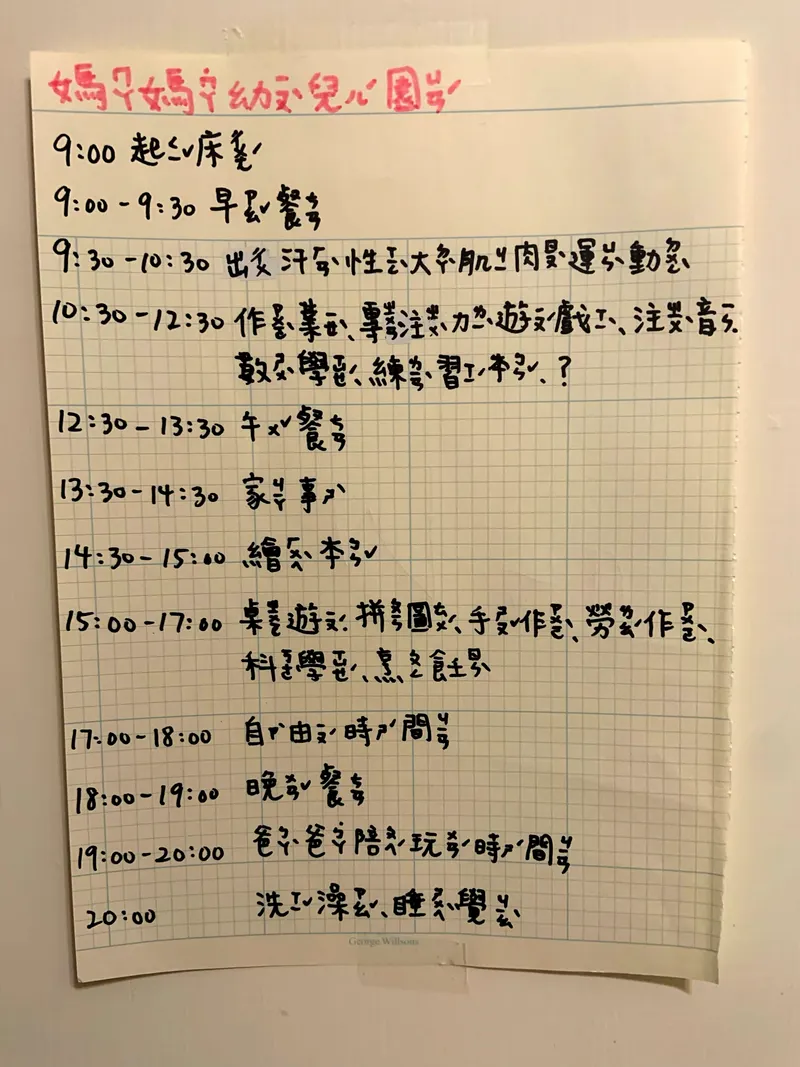 媽ㄇㄚ媽˙ㄇㄚ幼ㄧㄡˋ兒ㄦˊ園ㄩㄢˊ
9:00 起ㄑㄧˇ床ㄔㄨㄤˊ
9:00-9:30 早ㄗㄠˇ餐ㄘㄢ
9:30-10:30 出ㄔㄨ汗ㄏㄢˋ性ㄒㄧㄥˋ大ㄉㄚˋ肌ㄐㄧ肉ㄖㄡˋ運ㄩㄣˋ動ㄉㄨㄥˋ
10:30-12:30 作ㄗㄨㄛˋ業ㄧㄝˋ、專ㄓㄨㄢ注ㄓㄨˋ力ㄌㄧˋ遊ㄧㄡˊ戲ㄒㄧˋ、注ㄓㄨˋ音ㄧㄣ、
數ㄕㄨˋ學ㄒㄩㄝˊ、練ㄌㄧㄢˋ習ㄒㄧˊ本ㄅㄣˇ、?
12:30-13:30 午ㄨˇ餐ㄘㄢ
13:30-14:30 家ㄐㄧㄚ事ㄕˋ
14:30-15:00 繪ㄏㄨㄟˋ本ㄅㄣˇ
15:00-17:00 桌ㄓㄨㄛ遊ㄧㄡˊ、拼ㄆㄧㄣ圖ㄊㄨˊ、手ㄕㄡˇ作ㄗㄨㄛˋ、勞ㄌㄠˊ作ㄗㄨㄛˋ、
科ㄎㄜ學ㄒㄩㄝˊ、烹ㄆㄥ飪ㄖㄣˋ
17:00-18:00 自ㄗˋ由ㄧㄡˊ時ㄕˊ間ㄐㄧㄢ
18:00-19:00 晚ㄨㄢˇ餐ㄘㄢ
19:00-20:00 爸ㄅㄚˋ爸˙ㄅㄚ陪ㄆㄟˊ玩ㄨㄢˊ時ㄕˊ間ㄐㄧㄢ
20:00 洗ㄒㄧˇ澡ㄗㄠˇ、睡ㄕㄨㄟˋ覺ㄐㄧㄠˋ
George Willsons